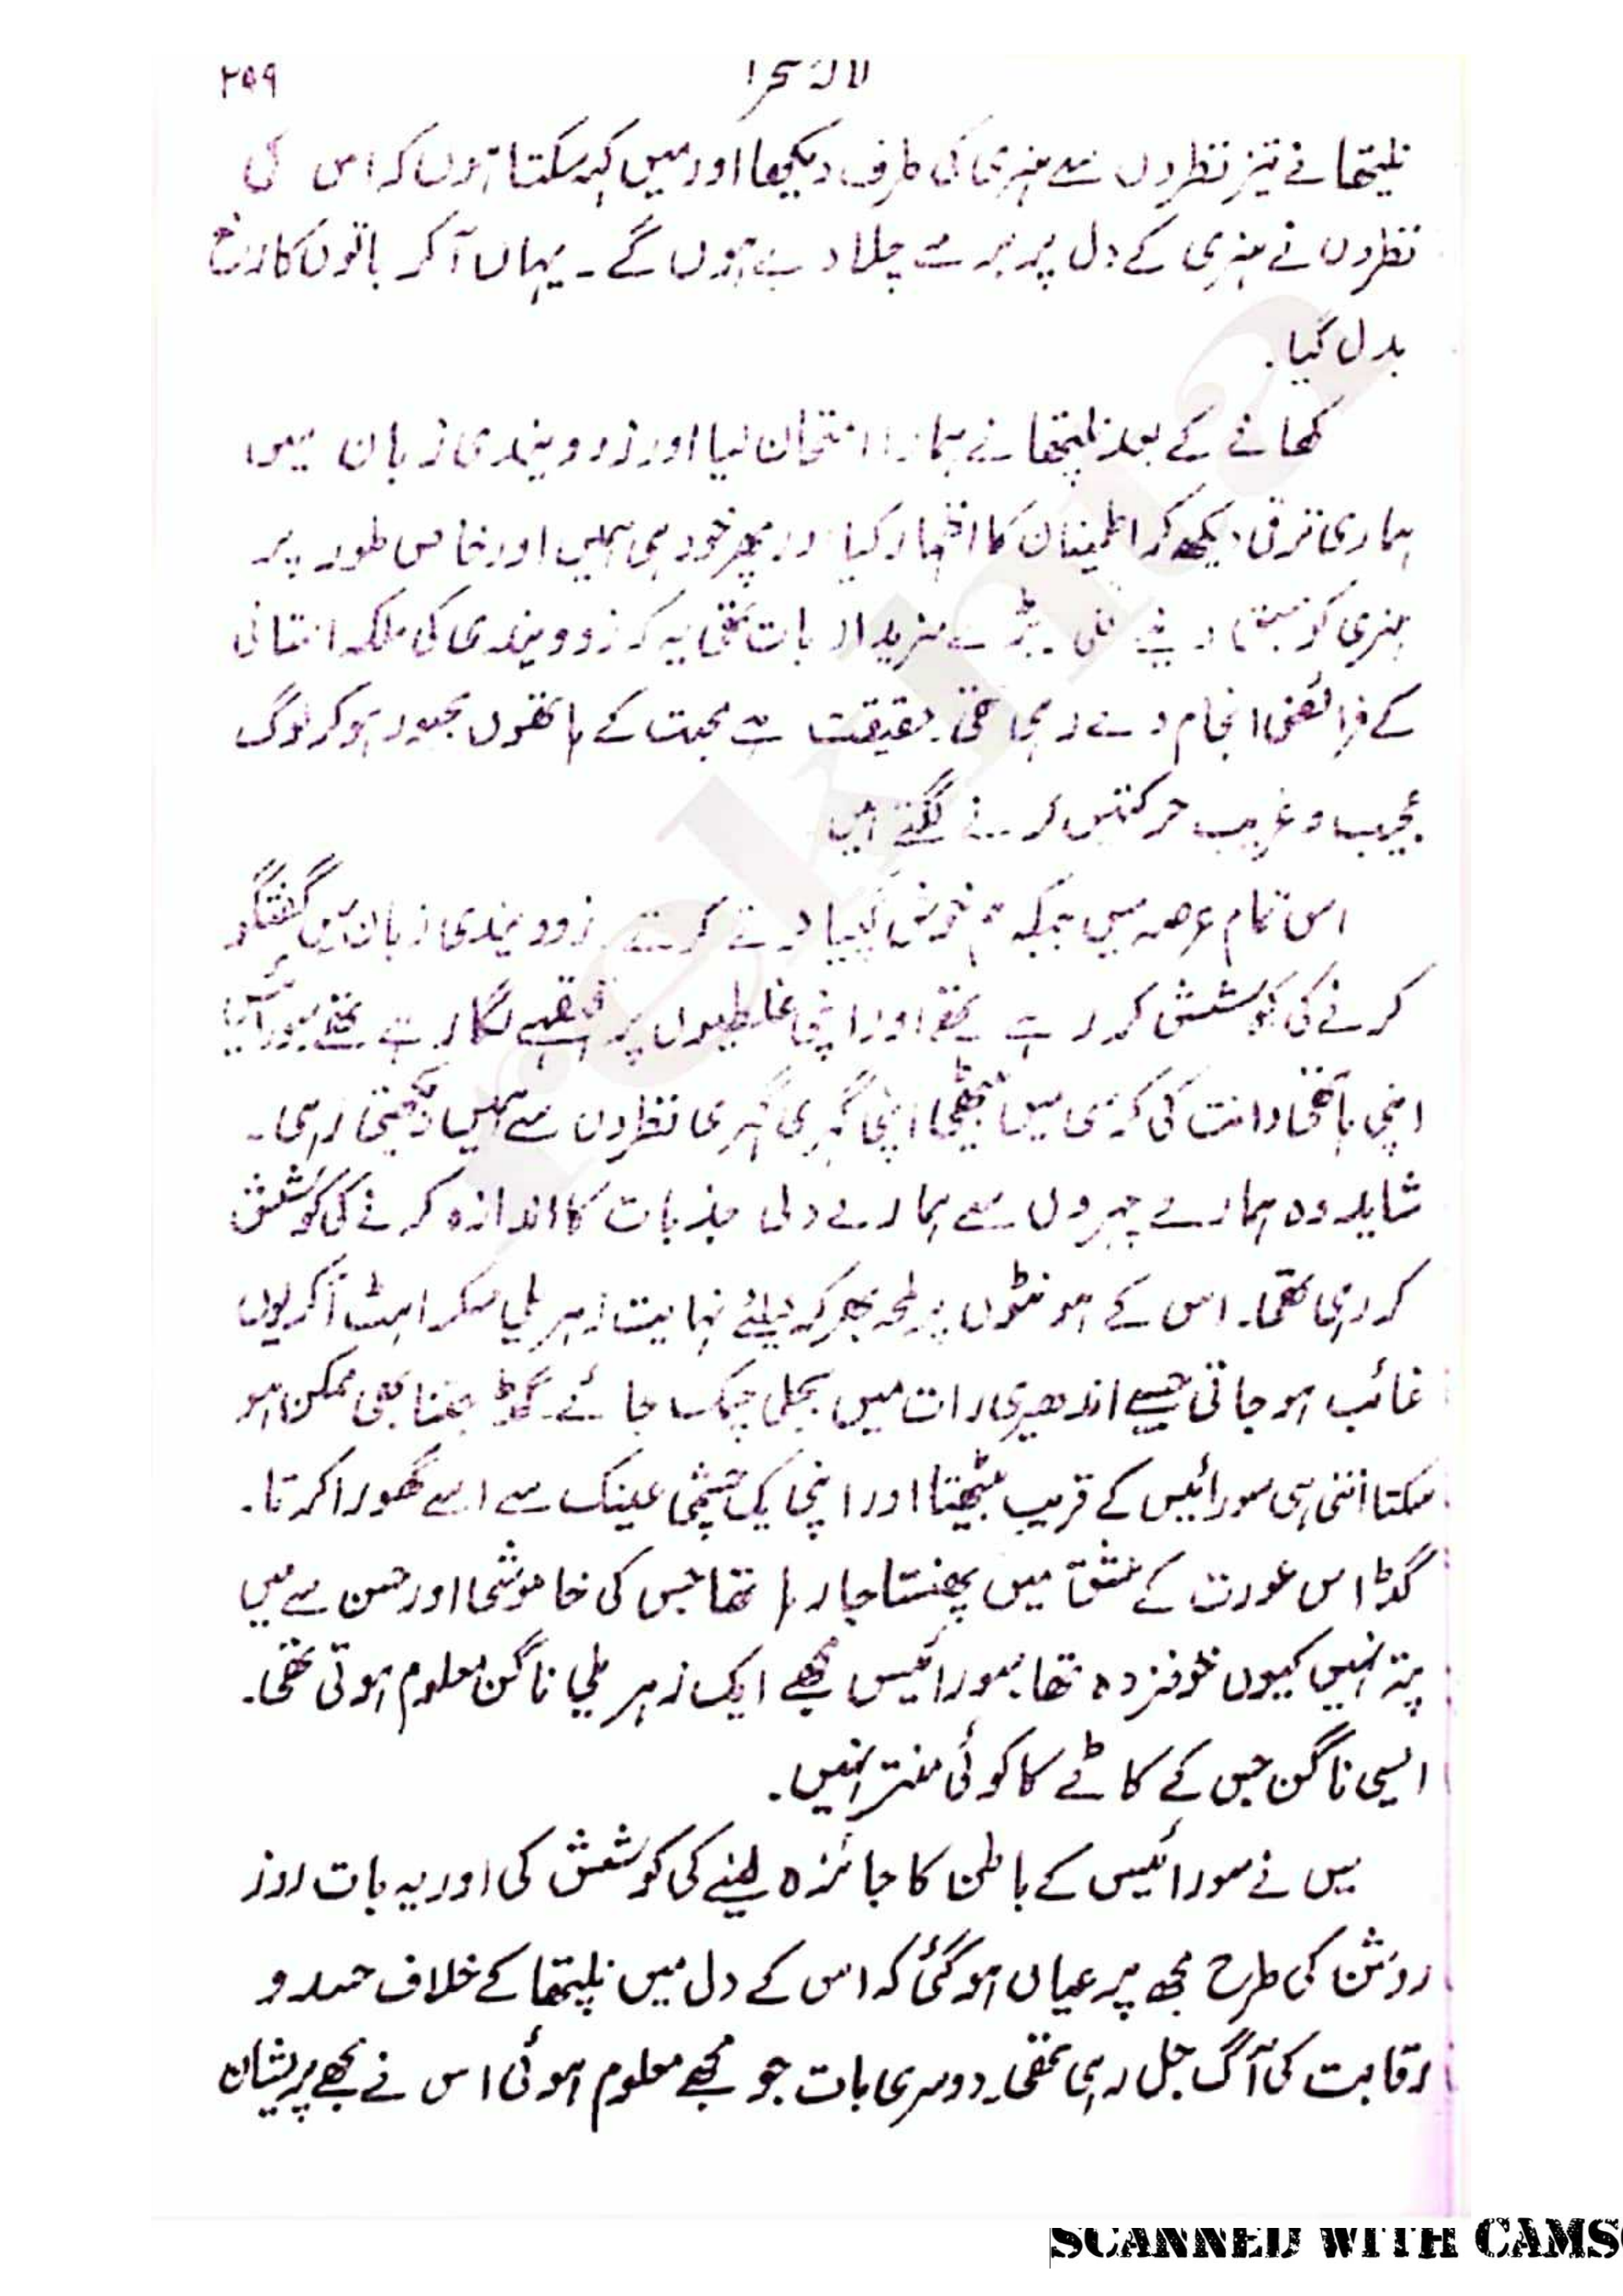 ۲۵۹
لالۂ صحرا
نلیپتھا نے تیز نظروں سے ہنری کی طرف دیکھا اور میں کہہ سکتا ہوں کہ اس کی
نظروں نے ہنری کے دل پر برے چلا دیے ہوں گے۔ یہاں آ کر باتوں کا رخ
بدل گیا۔
کھانے کے بعد نلیپتھا نے ہمارا امتحان لیا اور زوویندی زبان میں
ہماری ترقی دیکھ کر اطمینان کا اظہار کیا اور پھر خود ہی ہمیں اور خاص طور پر
ہنری کو سبق دینے لگی۔ بڑے مزیدار بات تھی یہ کہ زوویندی کی ملکہ استانی
کے فرائض انجام دے رہی تھی۔ حقیقت ہے محبت کے ہاتھوں مجبور ہو کر لوگ
عجیب و غریب حرکتیں کرنے لگتے ہیں
اس تمام عرصہ میں جبکہ ہم خوش گپیاں کرتے زوویندی زبان میں گفتگو
کرنے کی کوشش کر رہے تھے اور اپنی غلطیوں پر قہقہے لگا رہے تھے سورائیس
اپنی ہاتھی دانت کی کرسی میں بیٹھی اپنی گہری گہری نظروں سے ہمیں دیکھتی رہی۔
شاید وہ ہمارے چہروں سے ہمارے دلی جذبات کا اندازہ کرنے کی کوشش
کر رہی تھی۔ اس کے ہونٹوں پر لمحہ بھر کے لئے نہایت زہریلی مسکراہٹ آ کر یوں
غائب ہو جاتی جیسے اندھیری رات میں بجلی چمک جائے۔ گڈ جتنا بھی ممکن ہو
سکتا اتنی ہی سورائیس کے قریب بیٹھتا اور اپنی یک چشمی عینک سے اسے گھورا کرتا۔
گڈ اس عورت کے عشق میں پھنستا جا رہا تھا جس کی خاموشی اور حسن سے میں
پتہ نہیں کیوں خوفزدہ تھا۔ سورائیس مجھے ایک زہریلی ناگن معلوم ہوتی تھی۔
ایسی ناگن جس کے کاٹے کا کوئی منتر نہیں۔
میں نے سورائیس کے باطن کا جائزہ لینے کی کوشش کی اور یہ بات روز
روشن کی طرح مجھ پر عیاں ہو گئی کہ اس کے دل میں نلیپتھا کے خلاف حسد و
رقابت کی آگ جل رہی تھی۔ دوسری بات جو مجھے معلوم ہوئی اس نے مجھے پریشان
SCANNED WITH CAMS